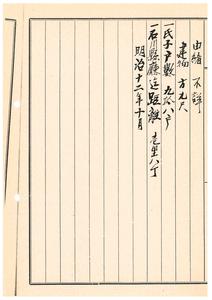 由緒 不詳
建物 方九尺
一氏子戸数 九拾八戸
一石川縣廳迄距離 壱里八丁
明治十二年十月